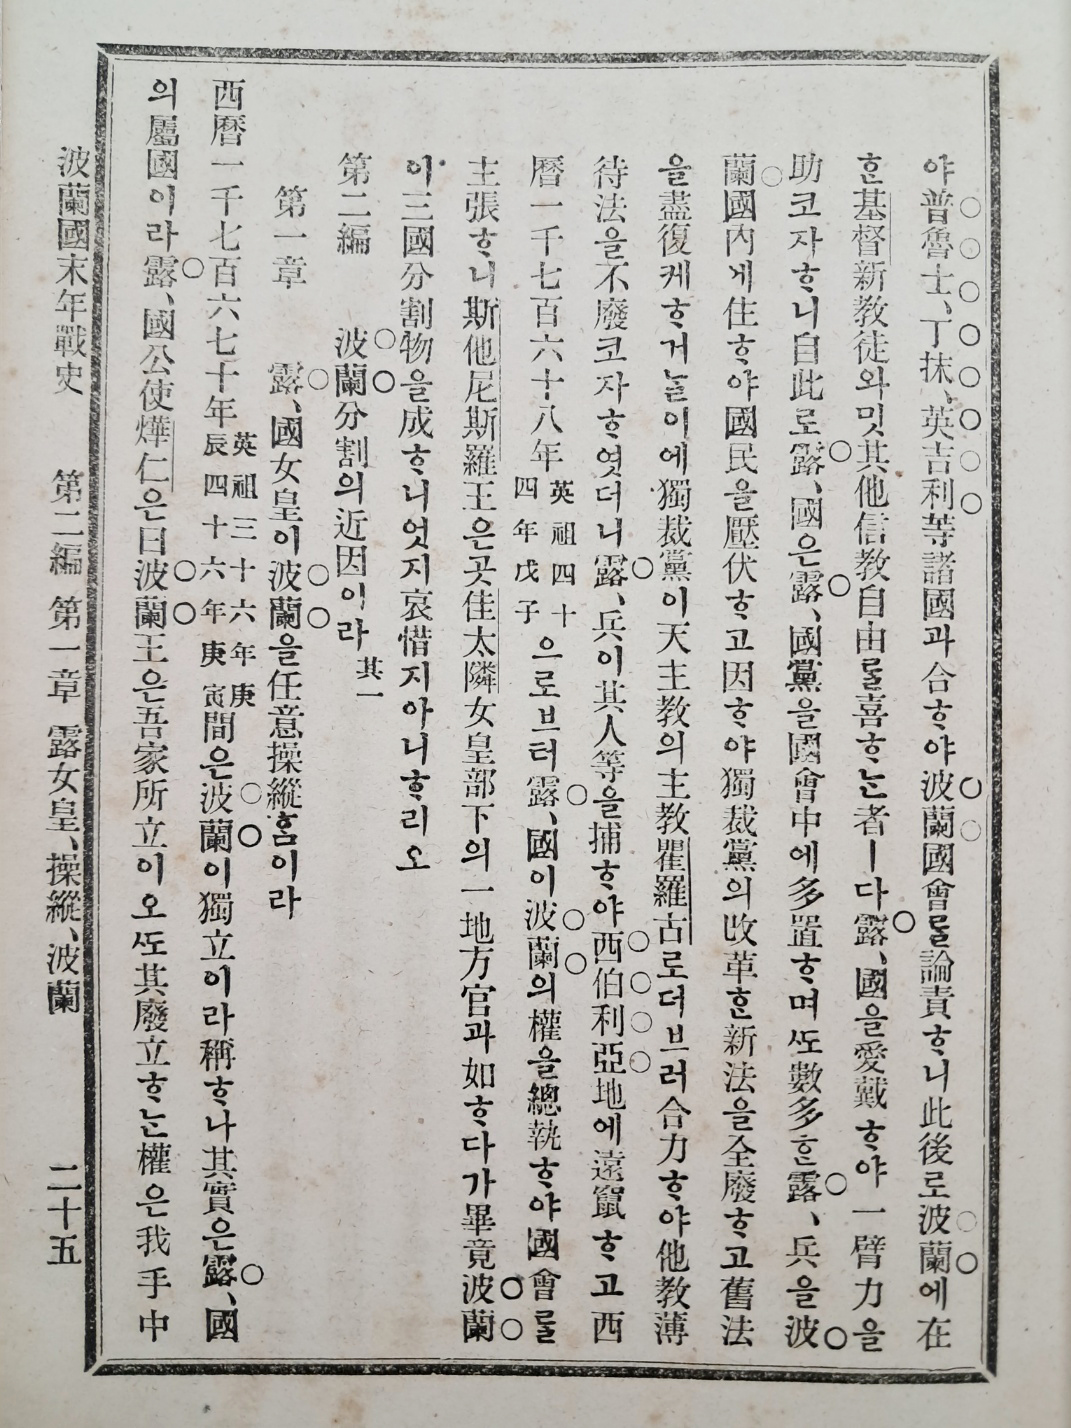 야普魯士、丁抹、英吉利等諸國과合ᄒᆞ야波蘭國會를論責ᄒᆞ니此後로波蘭에在
ᄒᆞᆫ基督新教徒와밋其他信教自由를喜ᄒᆞᄂᆞᆫ者ㅣ다露、國을愛戴ᄒᆞ야一臂力을
助코자ᄒᆞ니自此로露、國은露、國黨을國會中에多置ᄒᆞ며ᄯᅩ數多ᄒᆞᆫ露、兵을波
蘭國內게住ᄒᆞ야國民을壓伏ᄒᆞ고因ᄒᆞ야獨裁黨의改革ᄒᆞᆫ新法을全廢ᄒᆞ고舊法
을盡復케ᄒᆞ거ᄂᆞᆯ이에獨裁黨이天主教의主教瞿羅古로더브러合力ᄒᆞ야他教薄
待法을不廢코자ᄒᆞ엿더니露、兵이其人等을捕ᄒᆞ야西伯利亞地에遠竄ᄒᆞ고西
曆一千七百六十八年英祖四十四年戊子으로브터露、國이波蘭의權을總執ᄒᆞ야國會를
主張ᄒᆞ니斯他尼斯羅王은곳佳太隣女皇部下의一地方官과如ᄒᆞ다가畢竟波蘭
이三國分割物을成ᄒᆞ니엇지哀惜지아니ᄒᆞ리오
第二編 波蘭分割의近因이라其一
第一章 露、國女皇이波蘭을任意操縱홈이라
西曆一千七百六七十年英祖三十六年庚辰四十六年庚寅間은波蘭이獨立이라稱ᄒᆞ나其實은露、國
의屬國이라露、國公使燁仁은曰波蘭王은吾家所立이오ᄯᅩ其廢立ᄒᆞᄂᆞᆫ權은我手中
波蘭國末年戰史 第二編 第一章 露女皇、操縱、波蘭 二十五